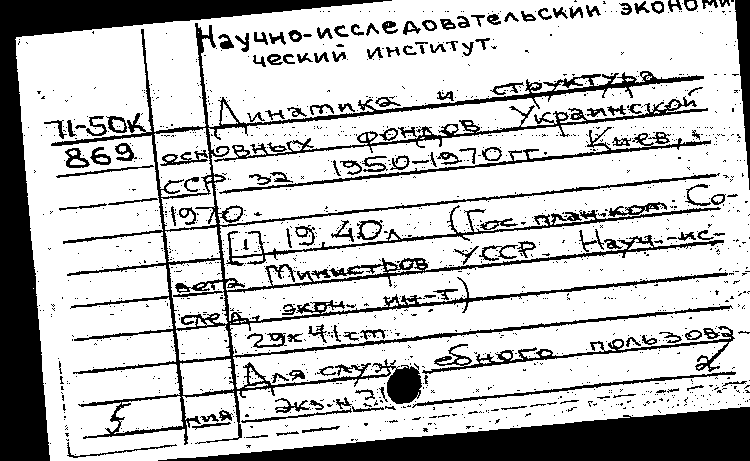 Научно-исследовательский экономи
ческий институт.
Динамика и структура
71-50К
869
основных фондов Украинской
ССР за 1950-1970гг. Киев,
1970.
[1], 19, 40л. (Гос. план. ком. Со-
вета Министров УССР. Науч.-ис-
след. экон. ин-т)
29х41cm.
Для служебного пользова-
ния. экз. н
2
5